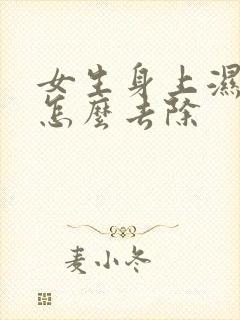 女生身上濕
怎麼去除
麦小冬